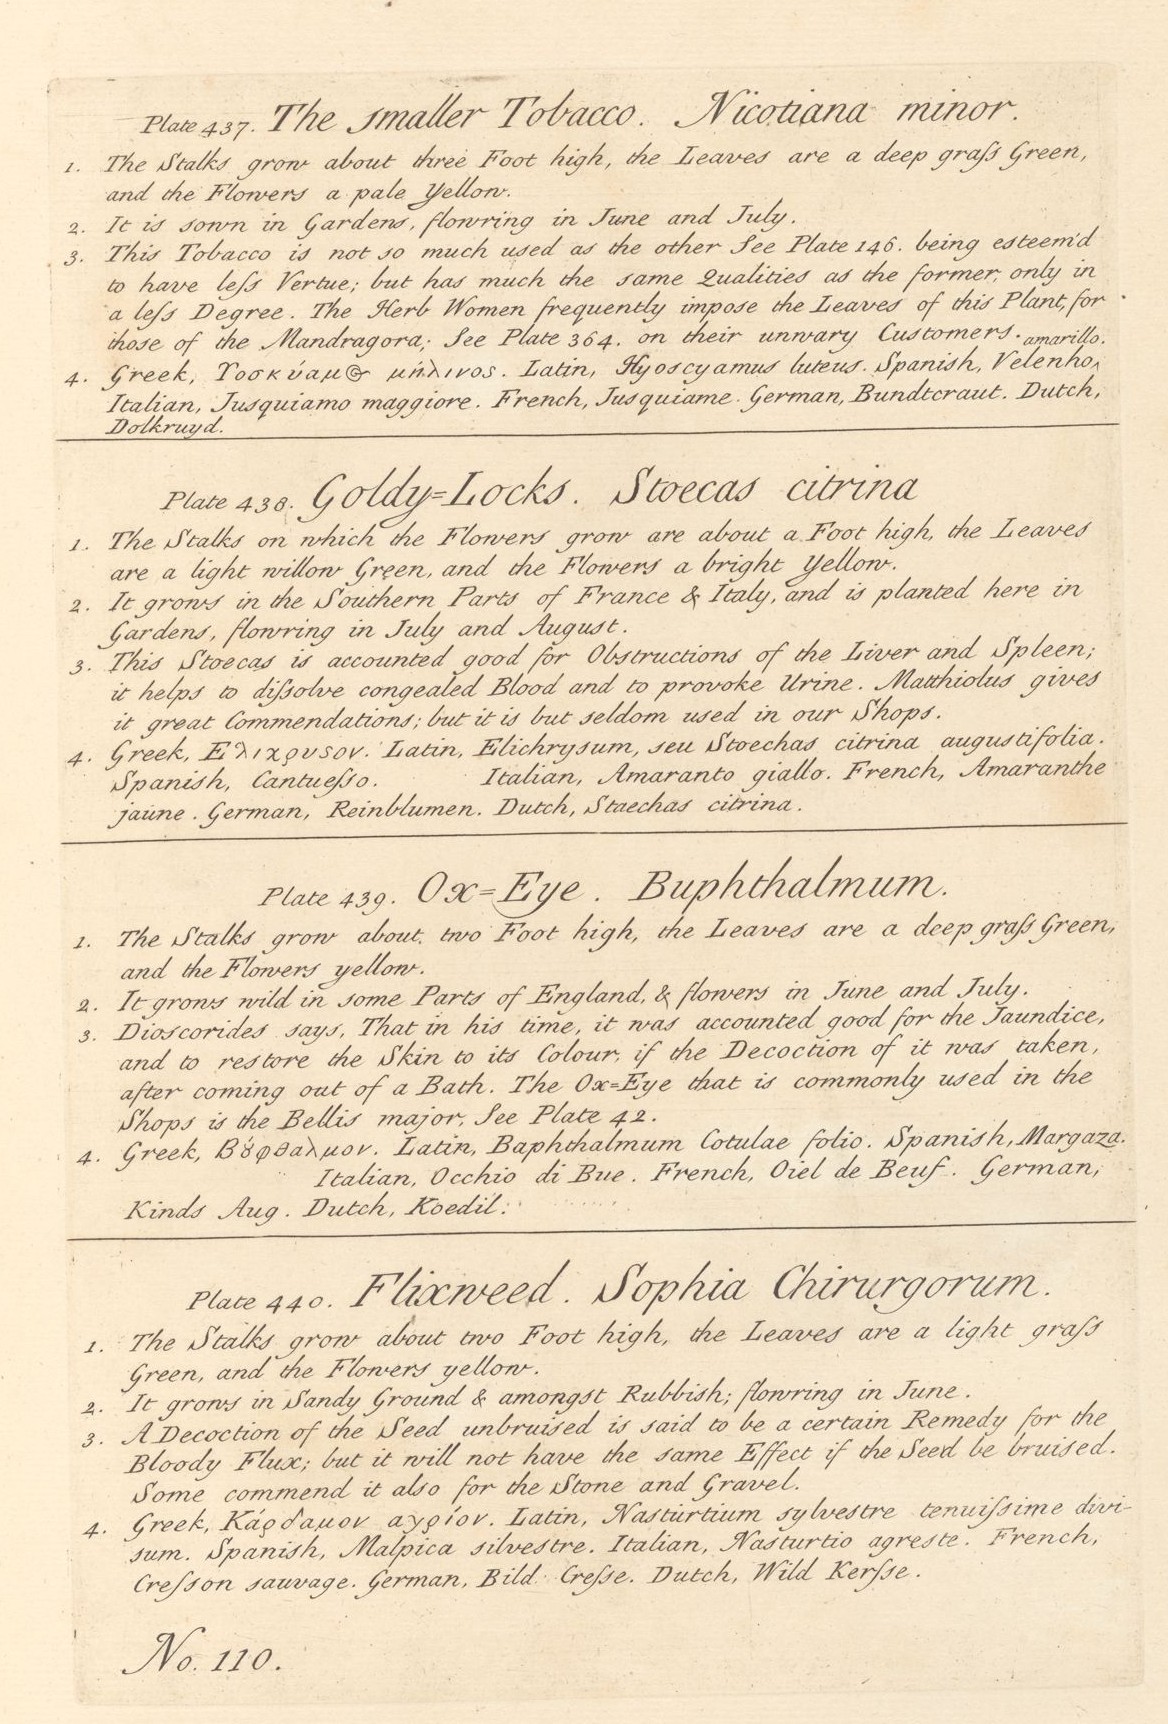 Plate 437. The smaller Tobacco. Nicotiana minor.
1. The Stalks grow about three Foot high, the Leaves are a deep graſs Green,
and the Flowers a pale Yellow.
2. It is sown in Gardens, flowring in June and July.
3. This Tobacco is not so much used as the other See Plate 146. being esteem'd
to have leſs Vertue; but has much the same Qualities as the former, only in
a leſs Degree. The Herb Women frequently impose the Leaves of this Plant, for
those of the Mandragora; See Plate 364. on their unwary Customers.
amarillo.
4. Greek, Υοσκύαμος μήλινος. Latin, Hyoscyamus luteus. Spanish, Velenho‸
Italian, Jusquiamo maggiore. French, Jusquiame. German, Bundtcraut. Dutch,
Dolkruyd.
Plate 438. Goldy=Locks. Stoecas citrina
1. The Stalks on which the Flowers grow are about a Foot high, the Leaves
are a light willow Green, and the Flowers a bright Yellow.
2. It grows in the Southern Parts of France & Italy, and is planted here in
Gardens, flowring in July and August.
3. This Stoecas is accounted good for Obstructions of the Liver and Spleen;
it helps to diſsolve congealed Blood and to provoke Urine. Matthiolus gives
it great Commendations; but it is but seldom used in our Shops.
4. Greek, Ελιχρυσον. Latin, Elichrysum, seu Stoechas citrina augustifolia.
Spanish, Cantueſso. Italian, Amaranto giallo. French, Amaranthe
jaune. German, Reinblumen. Dutch, Staechas citrina.
Plate 439. Ox=Eye. Buphthalmum.
1. The Stalks grow about two Foot high, the Leaves are a deep graſs Green,
and the Flowers yellow.
2. It grows wild in some Parts of England, & flowers in June and July.
3. Dioscorides says, That in his time, it was accounted good for the Jaundice,
and to restore the Skin to its Colour, if the Decoction of it was taken,
after coming out of a Bath. The Ox=Eye that is commonly used in the
Shops is the Bellis major, See Plate 42.
4. Greek, Βȣ́φθαλμον. Latin, Baphthalmum Cotulae folio. Spanish, Margaza.
Italian, Occhio di Bue. French, Oiel de Beuf. German,
Kinds Aug. Dutch, Koedil.
Plate 440. Flixweed. Sophia Chirurgorum.
1. The Stalks grow about two Foot high, the Leaves are a light graſs
Green, and the Flowers yellow.
2. It grows in Sandy Ground & amongst Rubbish; flowring in June.
3. A Decoction of the Seed unbruised is said to be a certain Remedy for the
Bloody Flux; but it will not have the same Effect if the Seed be bruised.
Some commend it also for the Stone and Gravel.
4. Greek, Κάρδαμον αγρίον. Latin, Nasturtium sylvestre tenuiſsime divi-
sum. Spanish, Malpica silvestre. Italian, Nasturtio agreste. French,
Creſson sauvage. German, Bild Creſse. Dutch, Wild Kerſse.
No. 110.